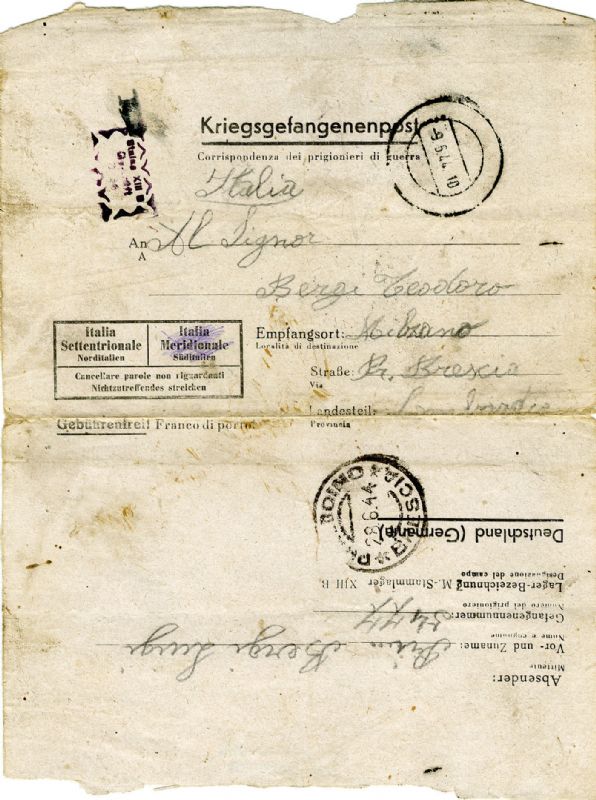 Kriegsgefangenenpost
Corrispondenza dei prigionieri di guerra
-9.6.44 10
Stalag XIII B
Italia
An Al Signor
A
Bergi Teodoro
Italia Settentrionale Norditalien
Italia Meridionale Süditalien
Cancellare parole non riguardanti
Nichtzutreffendes streichen
Empfangsort: Milzano
Località di destinazione
Straße: Pr. Brescia
Via
Landesteil: Lombardia
Provincia
Gebührenfrei! Franco di porto!
Absender:
Mittente
Vor- und Zuname: Bergi Luigi
Nome e cognome
Gefangenennummer:
Numero del prigioniero
Lager-Bezeichnung M.-Stammlager XIII B
Designazione del campo
Deutschland (Germania)
BRESCIA
28.6.44